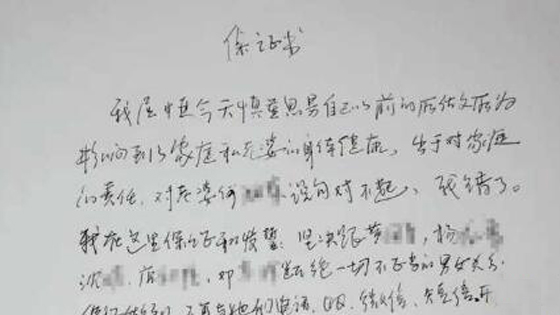 保证书
我屈恒今天慎重思易自己以前的所作所为
影响到了家庭和老婆的身体健康，出于对家庭
的责任，对老婆何 说句对不起，我错了。
我在这里保证和发誓：坚决跟黄 ，杨
沈 ，唐 ，邓 断绝一切不正当的男女关系
保证 ，不再与她们电话、QQ、微信、短信、开